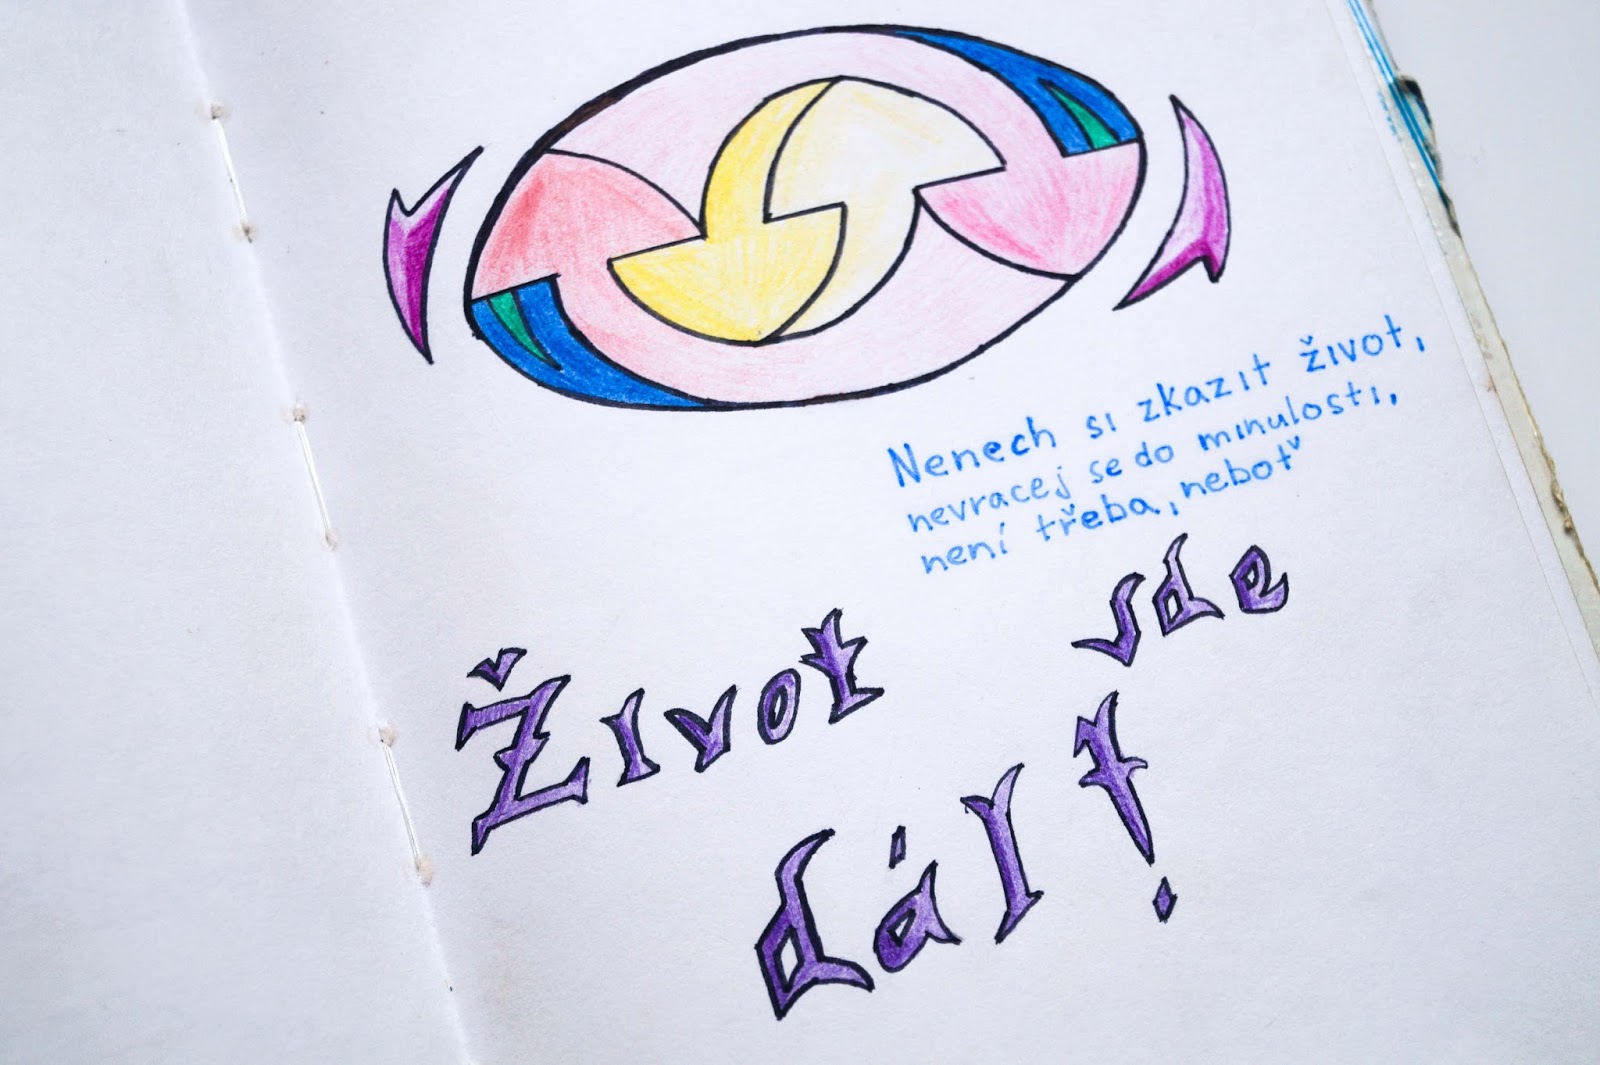 Nenech si zkazit život,
nevracej se do minulosti,
není třeba, neboť
Život jde
dál!